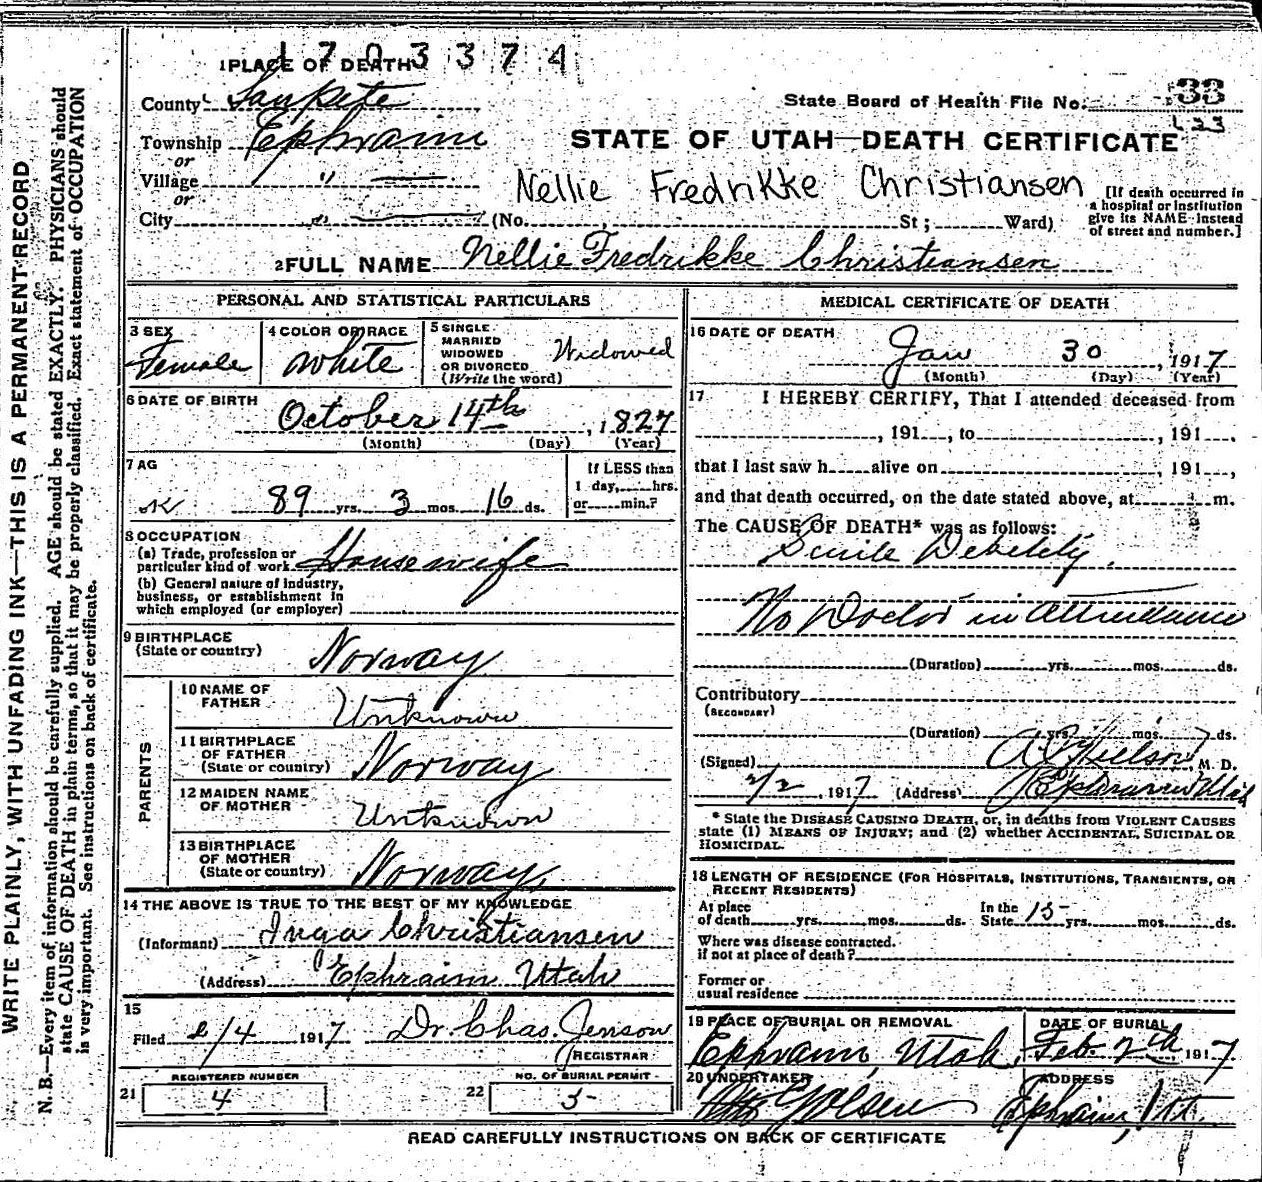 1703374
1 PLACE OF DEATH
County SanPete
State Board of Health File No. 33
Township Ephraim
or
STATE OF UTAH—DEATH CERTIFICATE
Village " 
or
Nellie Fredrikke Christiansen
City " (No. St; Ward)
[If death occurred in
a hospital or institution
give its NAME instead
of street and number.]
2 FULL NAME Nellie Fredrikke Christiansen
PERSONAL AND STATISTICAL PARTICULARS
3 SEX
Female
4 COLOR OR RACE
White
5 SINGLE
MARRIED
WIDOWED
OR DIVORCED
(Write the word)
Widowed
6 DATE OF BIRTH
October 14th, 1827
(Month) (Day) (Year)
7 AG
89 yrs. 3 mos. 16 ds.
If LESS than
1 day, hrs.
or min.?
8 OCCUPATION
(a) Trade, profession or
particular kind of work Housewife
(b) General nature of industry,
business, or establishment in
which employed (or employer)
9 BIRTHPLACE
(State or country) Norway
PARENTS
10 NAME OF
FATHER Unknown
11 BIRTHPLACE
OF FATHER
(State or country) Norway
12 MAIDEN NAME
OF MOTHER Unknown
13 BIRTHPLACE
OF MOTHER
(State or country) Norway
14 THE ABOVE IS TRUE TO THE BEST OF MY KNOWLEDGE
(Informant) Inga Christiansen
(Address) Ephraim Utah
15
Filed 2/4 1917 Dr Chas. Jenson
REGISTRAR
REGISTERED NUMBER
21 4
NO. OF BURIAL PERMIT
22 5
MEDICAL CERTIFICATE OF DEATH
16 DATE OF DEATH
Jan 30, 1917
(Month) (Day) (Year)
17 I HEREBY CERTIFY, That I attended deceased from
, 191 , to , 191 .
that I last saw h alive on , 191 ,
and that death occurred, on the date stated above, at m.
The CAUSE OF DEATH* was as follows:
Senile Debelety.
No Doctor in Attendance
(Duration) yrs. mos. ds.
Contributory
(SECONDARY)
(Duration) yrs. mos. ds.
(Signed) A C Nielson, M. D.
2/2, 1917 (Address) Ephraim Utah
* State the DISEASE CAUSING DEATH, or, in deaths from VIOLENT CAUSES
state (1) MEANS OF INJURY; and (2) whether ACCIDENTAL, SUICIDAL OR
HOMICIDAL.
18 LENGTH OF RESIDENCE (FOR HOSPITALS, INSTITUTIONS, TRANSIENTS, OR
RECENT RESIDENTS)
At place
of death yrs. mos. ds.
In the
State 15 yrs. mos. ds.
Where was disease contracted.
if not at place of death?
Former or
usual residence
19 PLACE OF BURIAL OR REMOVAL
Ephraim, Utah
DATE OF BURIAL
Feb. 2th 1917.
20 UNDERTAKER
Olsen
ADDRESS
Ephraim, Ut.
READ CAREFULLY INSTRUCTIONS ON BACK OF CERTIFICATE
WRITE PLAINLY, WITH UNFADING INK—THIS IS A PERMANENT RECORD
N. B.—Every item of information should be carefully supplied. AGE should be stated EXACTLY. PHYSICIANS should
state CAUSE OF DEATH in plain terms, so that it may be properly classified. Exact statement of OCCUPATION
is very important. See instructions on back of certificate.